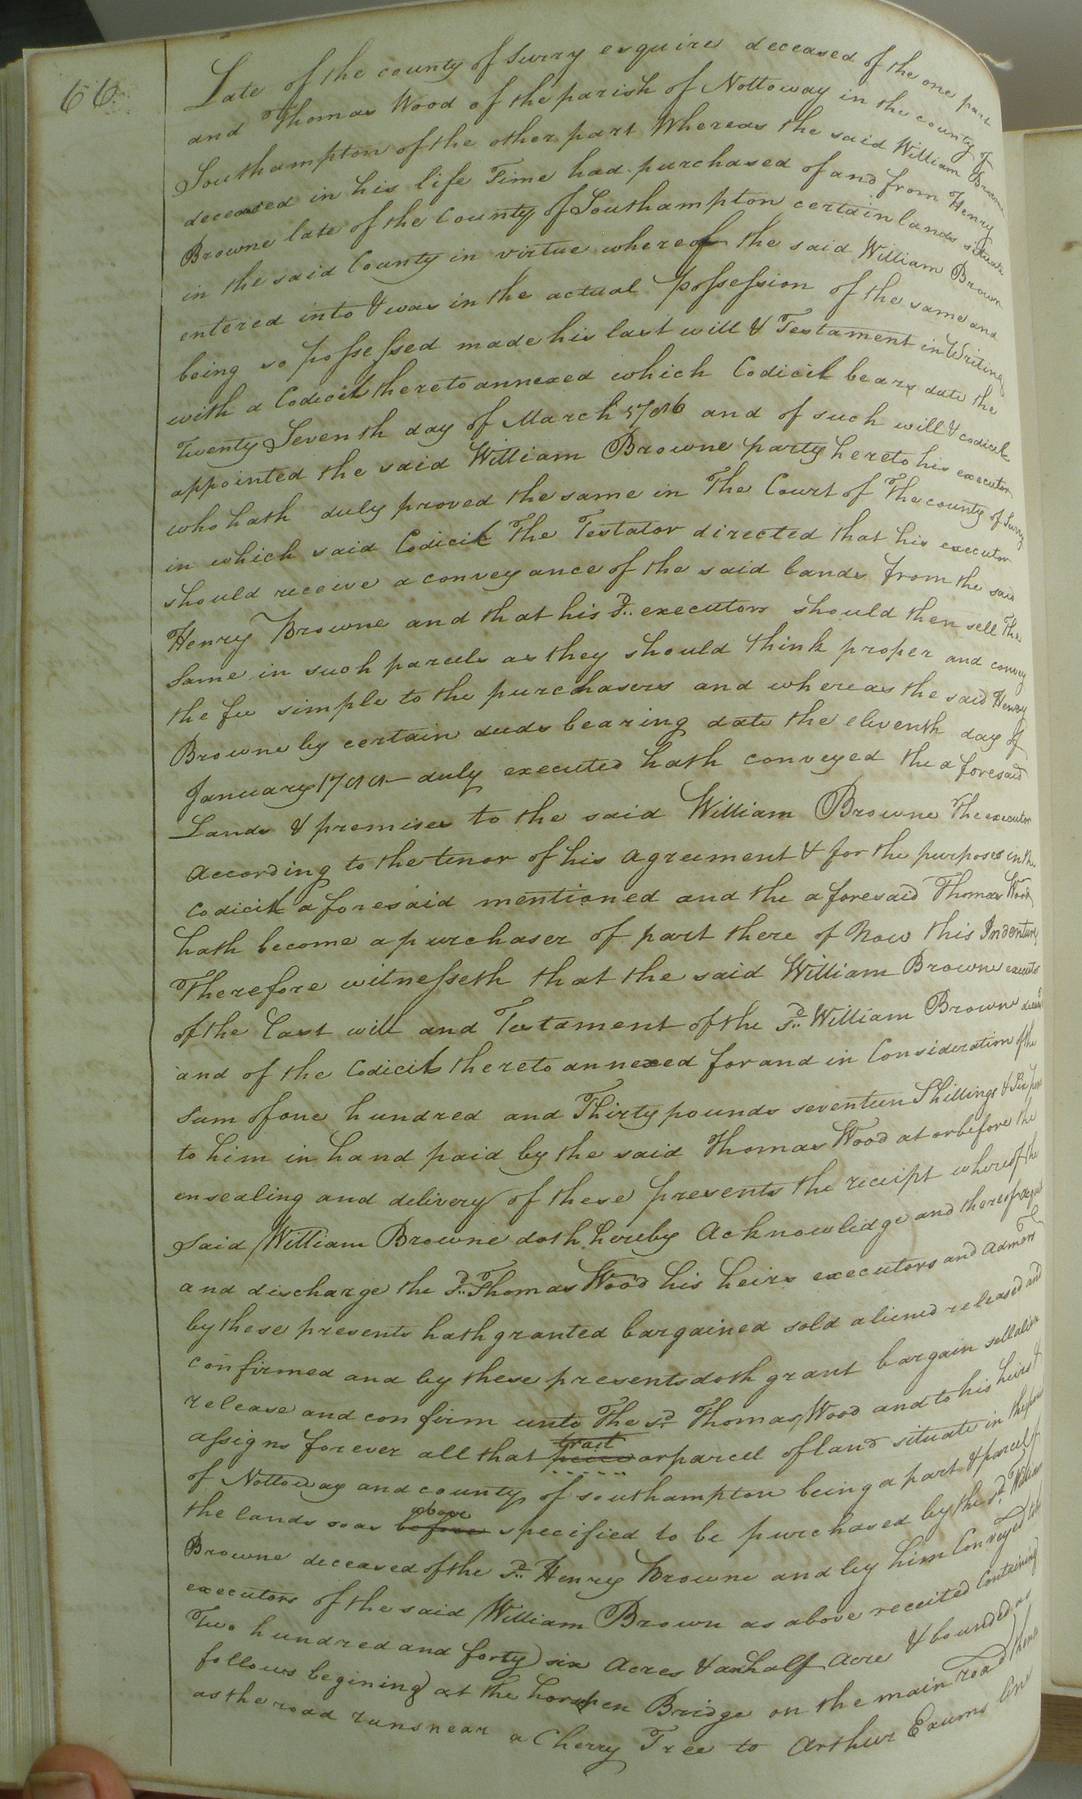 66
Late of the county of Surry esquire deceased of the one part
and Thomas Wood of the parish of Nottoway in the county of
Southampton of the other part Whereas the said William Browne
deceased in his life Time had purchased of and from Henry
Browne late of the County of Southampton certain lands situate
in the said County in virtue whereof the said William Brown
entered into & was in the actual possession of the same and
being so possessed made his last will & Testament in Writing
with a Codicil thereto annexed which Codicil bears date the
Twenty Seventh day of March 1786 and of such will & codicil
appointed the said William Browne party hereto his executor
who hath duly proved the same in The Court of The county of Surry
in which said Codicil The Testator directed that his executor
should receive a conveyance of the said lands from the said
Henry Browne and that his sd. executors should then sell The
Same in such parcels as they should think proper and convey
the fee simple to the purchasers and whereas the said Henry
Browne by certain deeds bearing date the eleventh day of
January 1788 duly executed hath conveyed the aforesaid
Lands & premises to the said William Browne The executor
According to the tenor of his agreement & for the purposes in the
Codicil aforesaid mentioned and the aforesaid Thomas Wood
hath become a purchaser of part there of Now this Indenture
Therefore witnesseth that the said William Browne
of the Last will and Testament of the sd. William Browne
and of the Codicil thereto annexed for and in Consideration of the
Sum of one hundred and Thirty pounds seventeen Shillings &
to him in hand paid by the said Thomas Wood at or before the
ensealing and delivery of these presents the receipt whereof the
said William Browne doth hereby Acknowledge and thereof
and discharge the sd. Thomas Wood his heirs executors and Admors
by these presents hath granted bargained sold aliened released and
confirmed and by these presents doth grant bargain sell alien
release and confirm unto The sd. Thomas Wood and to his heirs &
assigns forever all that tract piece or parcel of land situate in the
of Nottoway and county of Southampton being a part & parcel of
the lands so as above before specified to be purchased by the sd. William
Browne deceased of the sd. Henry Browne and by him Conveyed to the
executors of the said William Brown as above receited Containing
Two hundred and forty six Acres & an half Acre & bounded as
follows begining at the horsepen Bridge on the main road thence
as the road runs near a Cherry Tree to Arthur Exums line